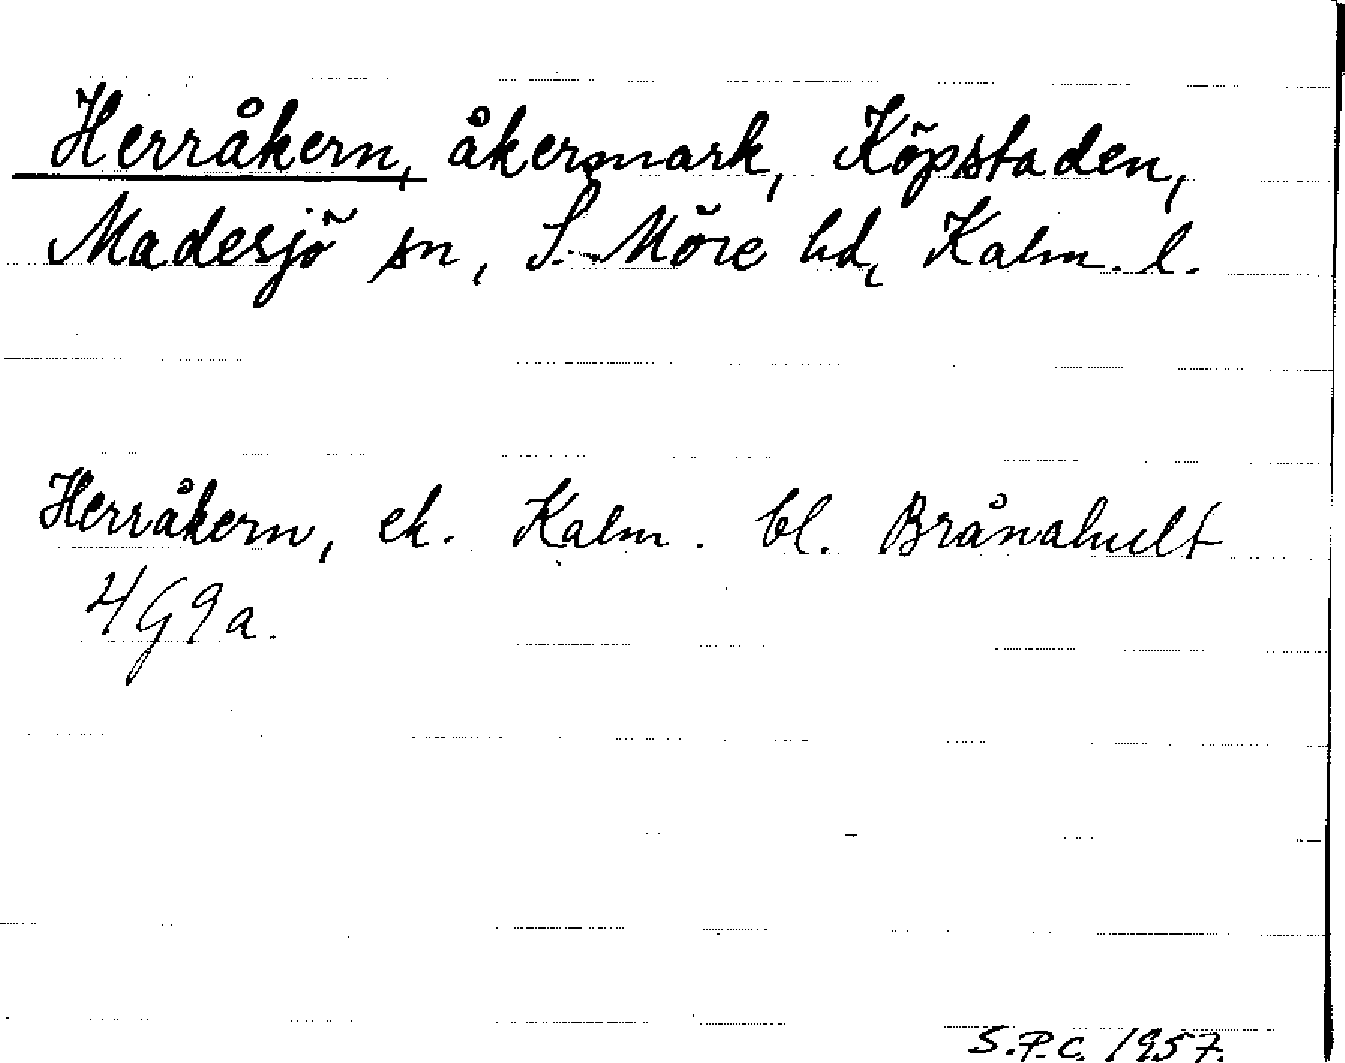 Herråkern, åkermark, Köpstaden,
Madesjö sn, S. Möre hd, Kalm. l.
Herråkern, ek. Kalm. bl. Brånahult
4G9a.
S.P.C. 1957.